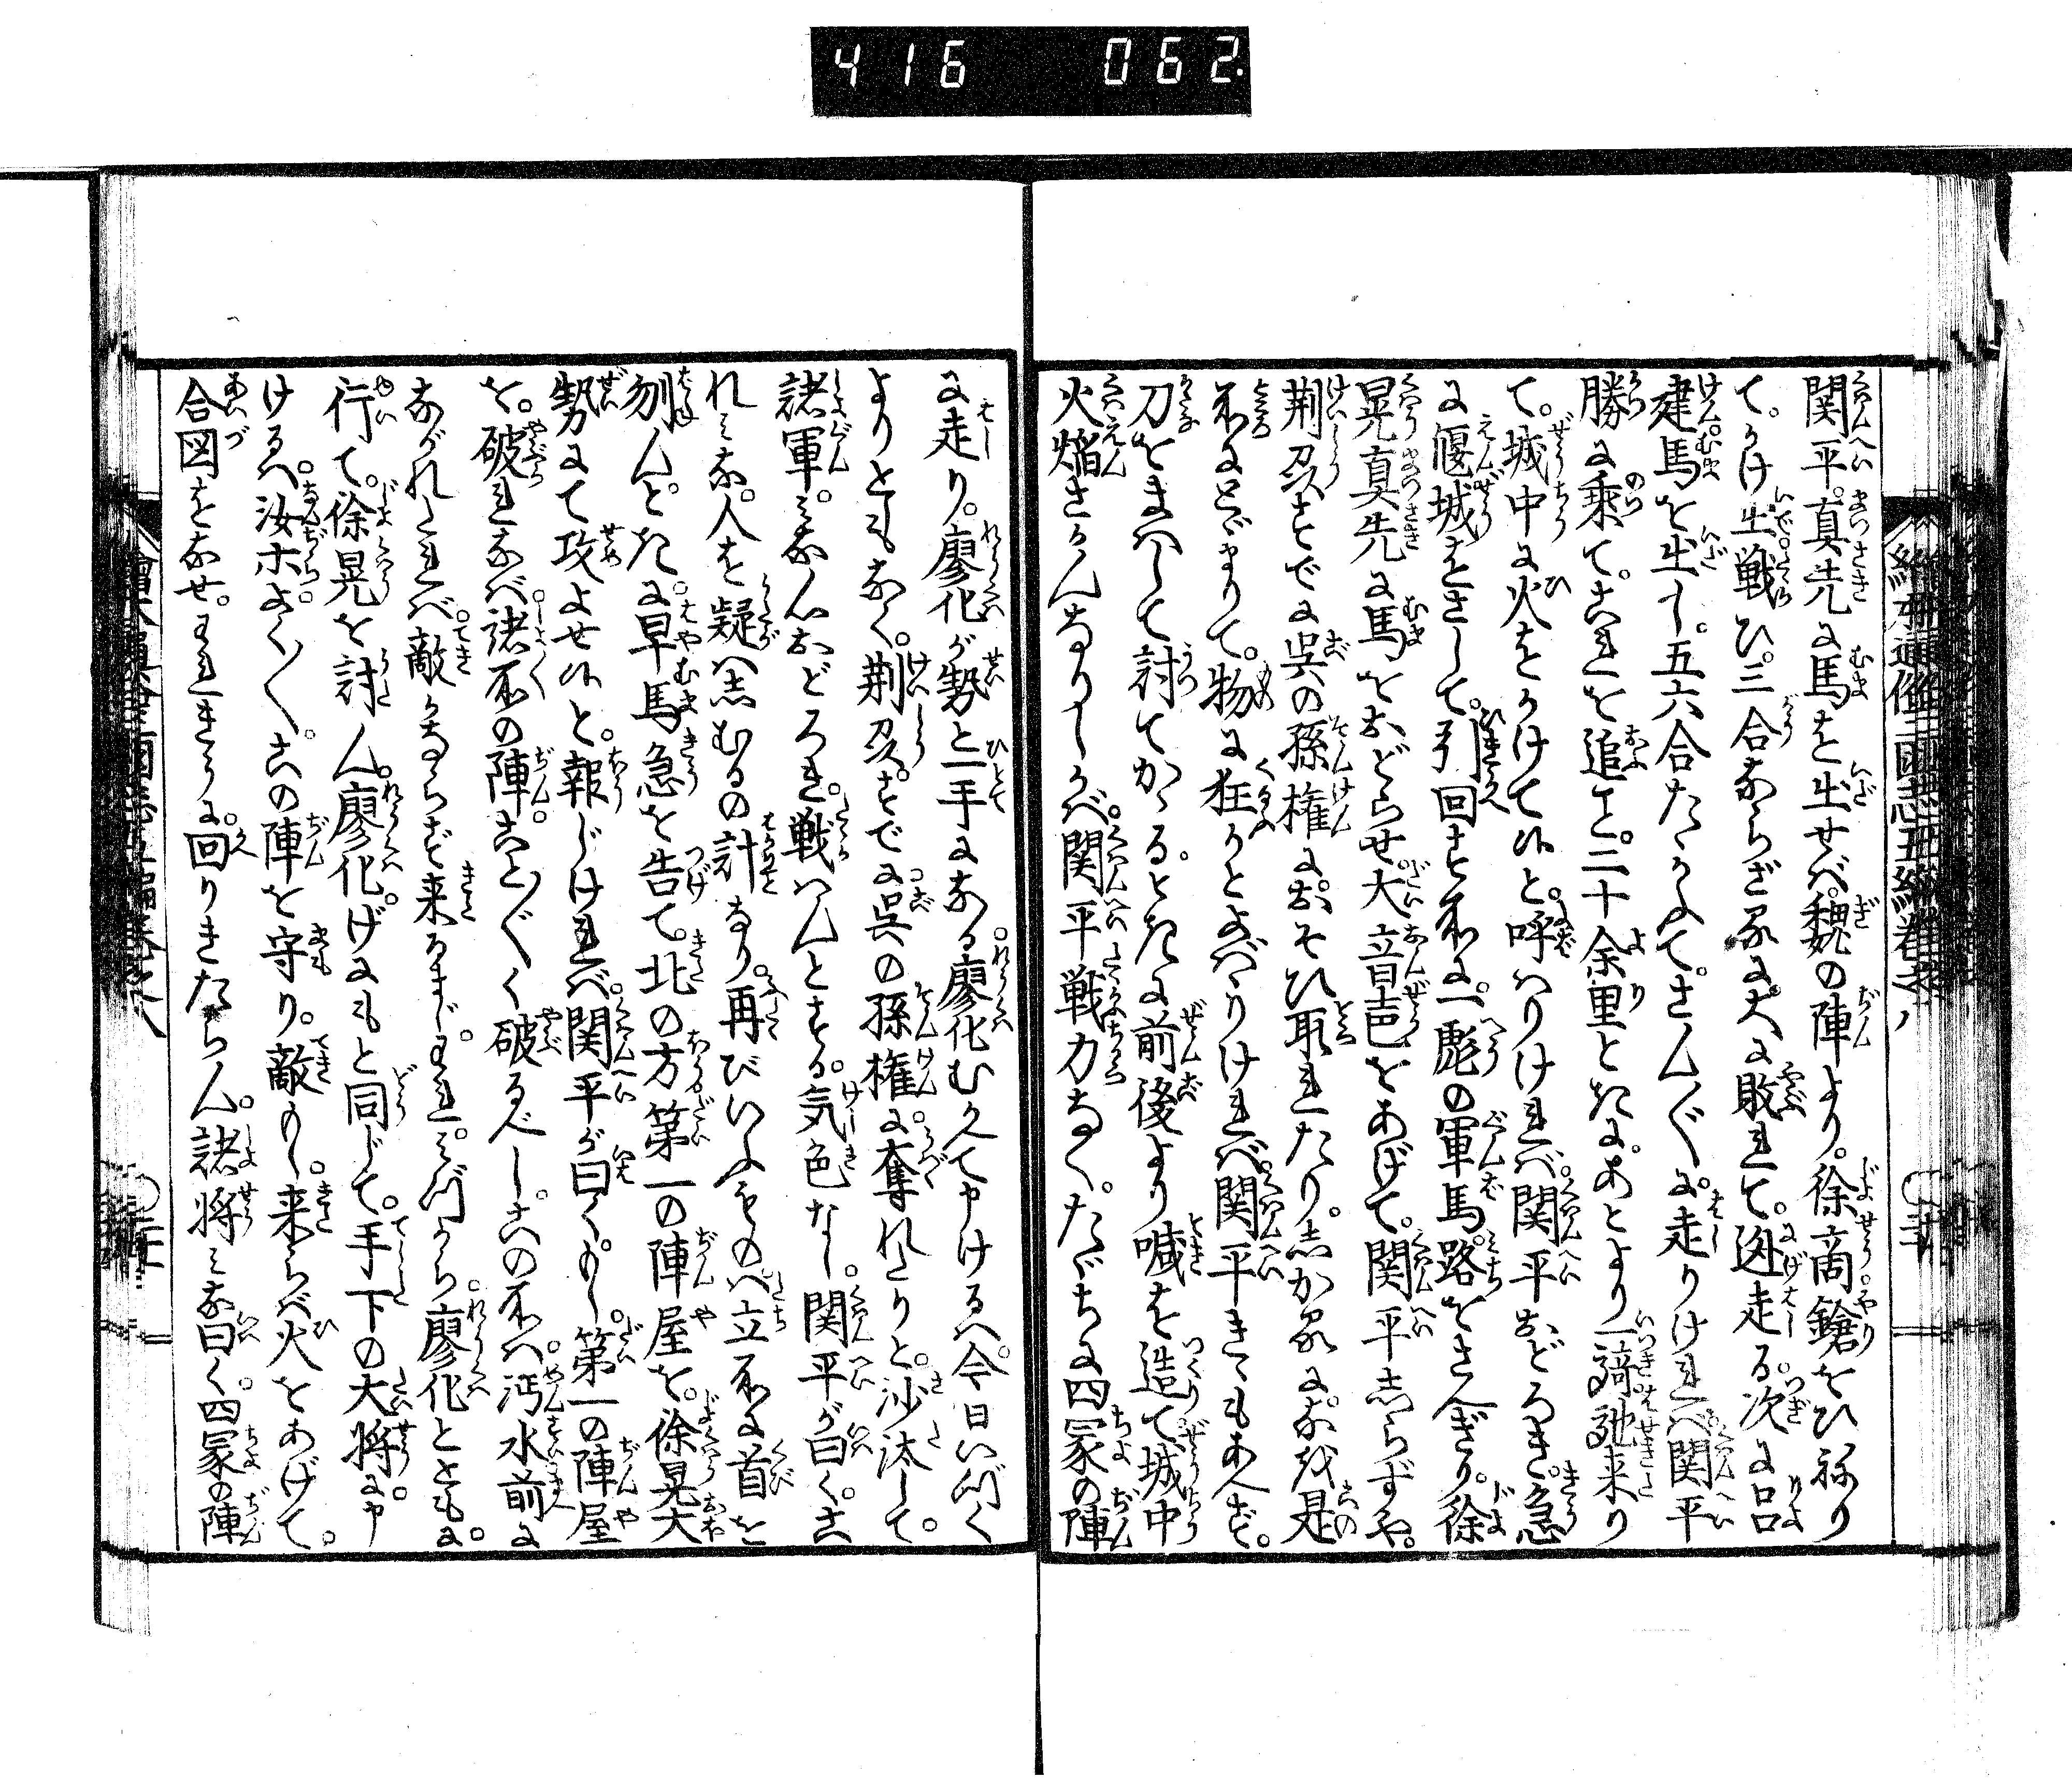 416 062.
関平真先に馬を出せバ魏の陣より。徐商鎗をひねり
て。かけ出戦ひ。三合ならざるに大に敗れて。迯走る次に呂
建馬を出し。五六合たゝかふて。さん〴〵に走りけれバ関平
勝に乗て。これを追こと。二十余里ときに。あとより一騎馳来り
て。城中に火をかけて候と。呼ハりけれバ関平おどろき。急
に偃城をさして。引回す所に。一彪の軍馬路をさへぎり。徐
晃真先に馬をおどらせ。大音声をあげて。関平しらずや。
荊州すでに呉の孫権に。おそひ取れたり。しかるに。なを是
所にとゞまりて。物に狂かとよバゝりけれバ関平きゝもあへず。
刀をまハして討てかゝる。ときに前後より喊を造て城中
火焔さかんなりしかバ。関平戦力なく。たゞちに四冢の陣
に走り。廖化が勢と一手になる。廖化むかへて申けるハ今日いづく
よりともなく。荊州すでに呉の孫権に奪れたりと。沙汰して。
諸軍。ミな心おどろき。戦ハんとする。気色なし。関平が曰く。こ
れミな。人を疑ハしむるの計なり。再びいふものハ立所に首を
刎んと。ときに早馬急を告て。北の方第一の陣屋を。徐晃大
勢にて攻よせ候と。報じけれバ関平が曰く。もし。第一の陣屋
を。破れなバ諸所の陣。こと〴〵く破るべし。この所ハ。沔水前に
ながれたれバ。敵かならず来るまじ。われミづから廖化とともに。
行て。徐晃を討ん。廖化。げにもと同じて。手下の大将に申
けるハ。汝ホよく〳〵。この陣を守り。敵もし。来らバ火をあげて。
合図をなせ。われきうに。回りきたらん。諸将ミな曰く。四冢の陣